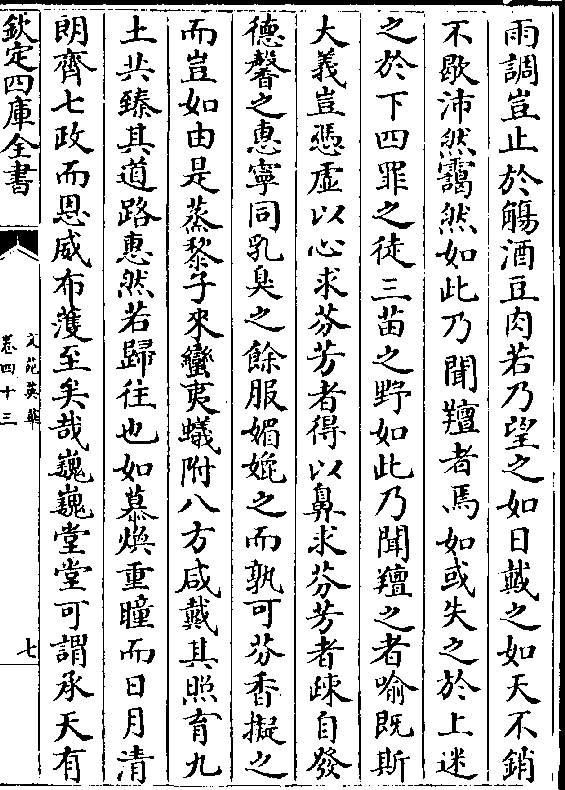 雨調豈止於觴酒豆肉若乃望之如日戴之如天不銷
不歇沛然靄然如此乃聞羶者焉如或失之於上迷
之於下四罪之徒三苗之野如此乃聞羶之者喻既斯
大義豈憑虛以心求芬芳者得以鼻求芬芳者疎自發
德馨之惠寧同乳臭之餘服媚媲之而孰可芬香擬之
而豈如由是蒸黎子來蠻夷蟻附八方咸戴其照育九
土共臻其道路惠然若歸往也如慕煥重瞳而日月清
朗齊七政而恩威布蒦至矣哉巍巍堂堂可謂承天有
欽定四庫全書
文苑英華
卷四十三
七